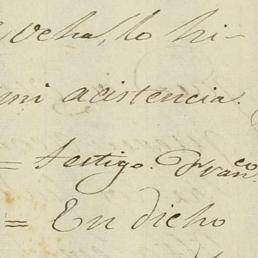 vcha, lo hi-
mi acistencia.
= testigo. Franco
= En dicho